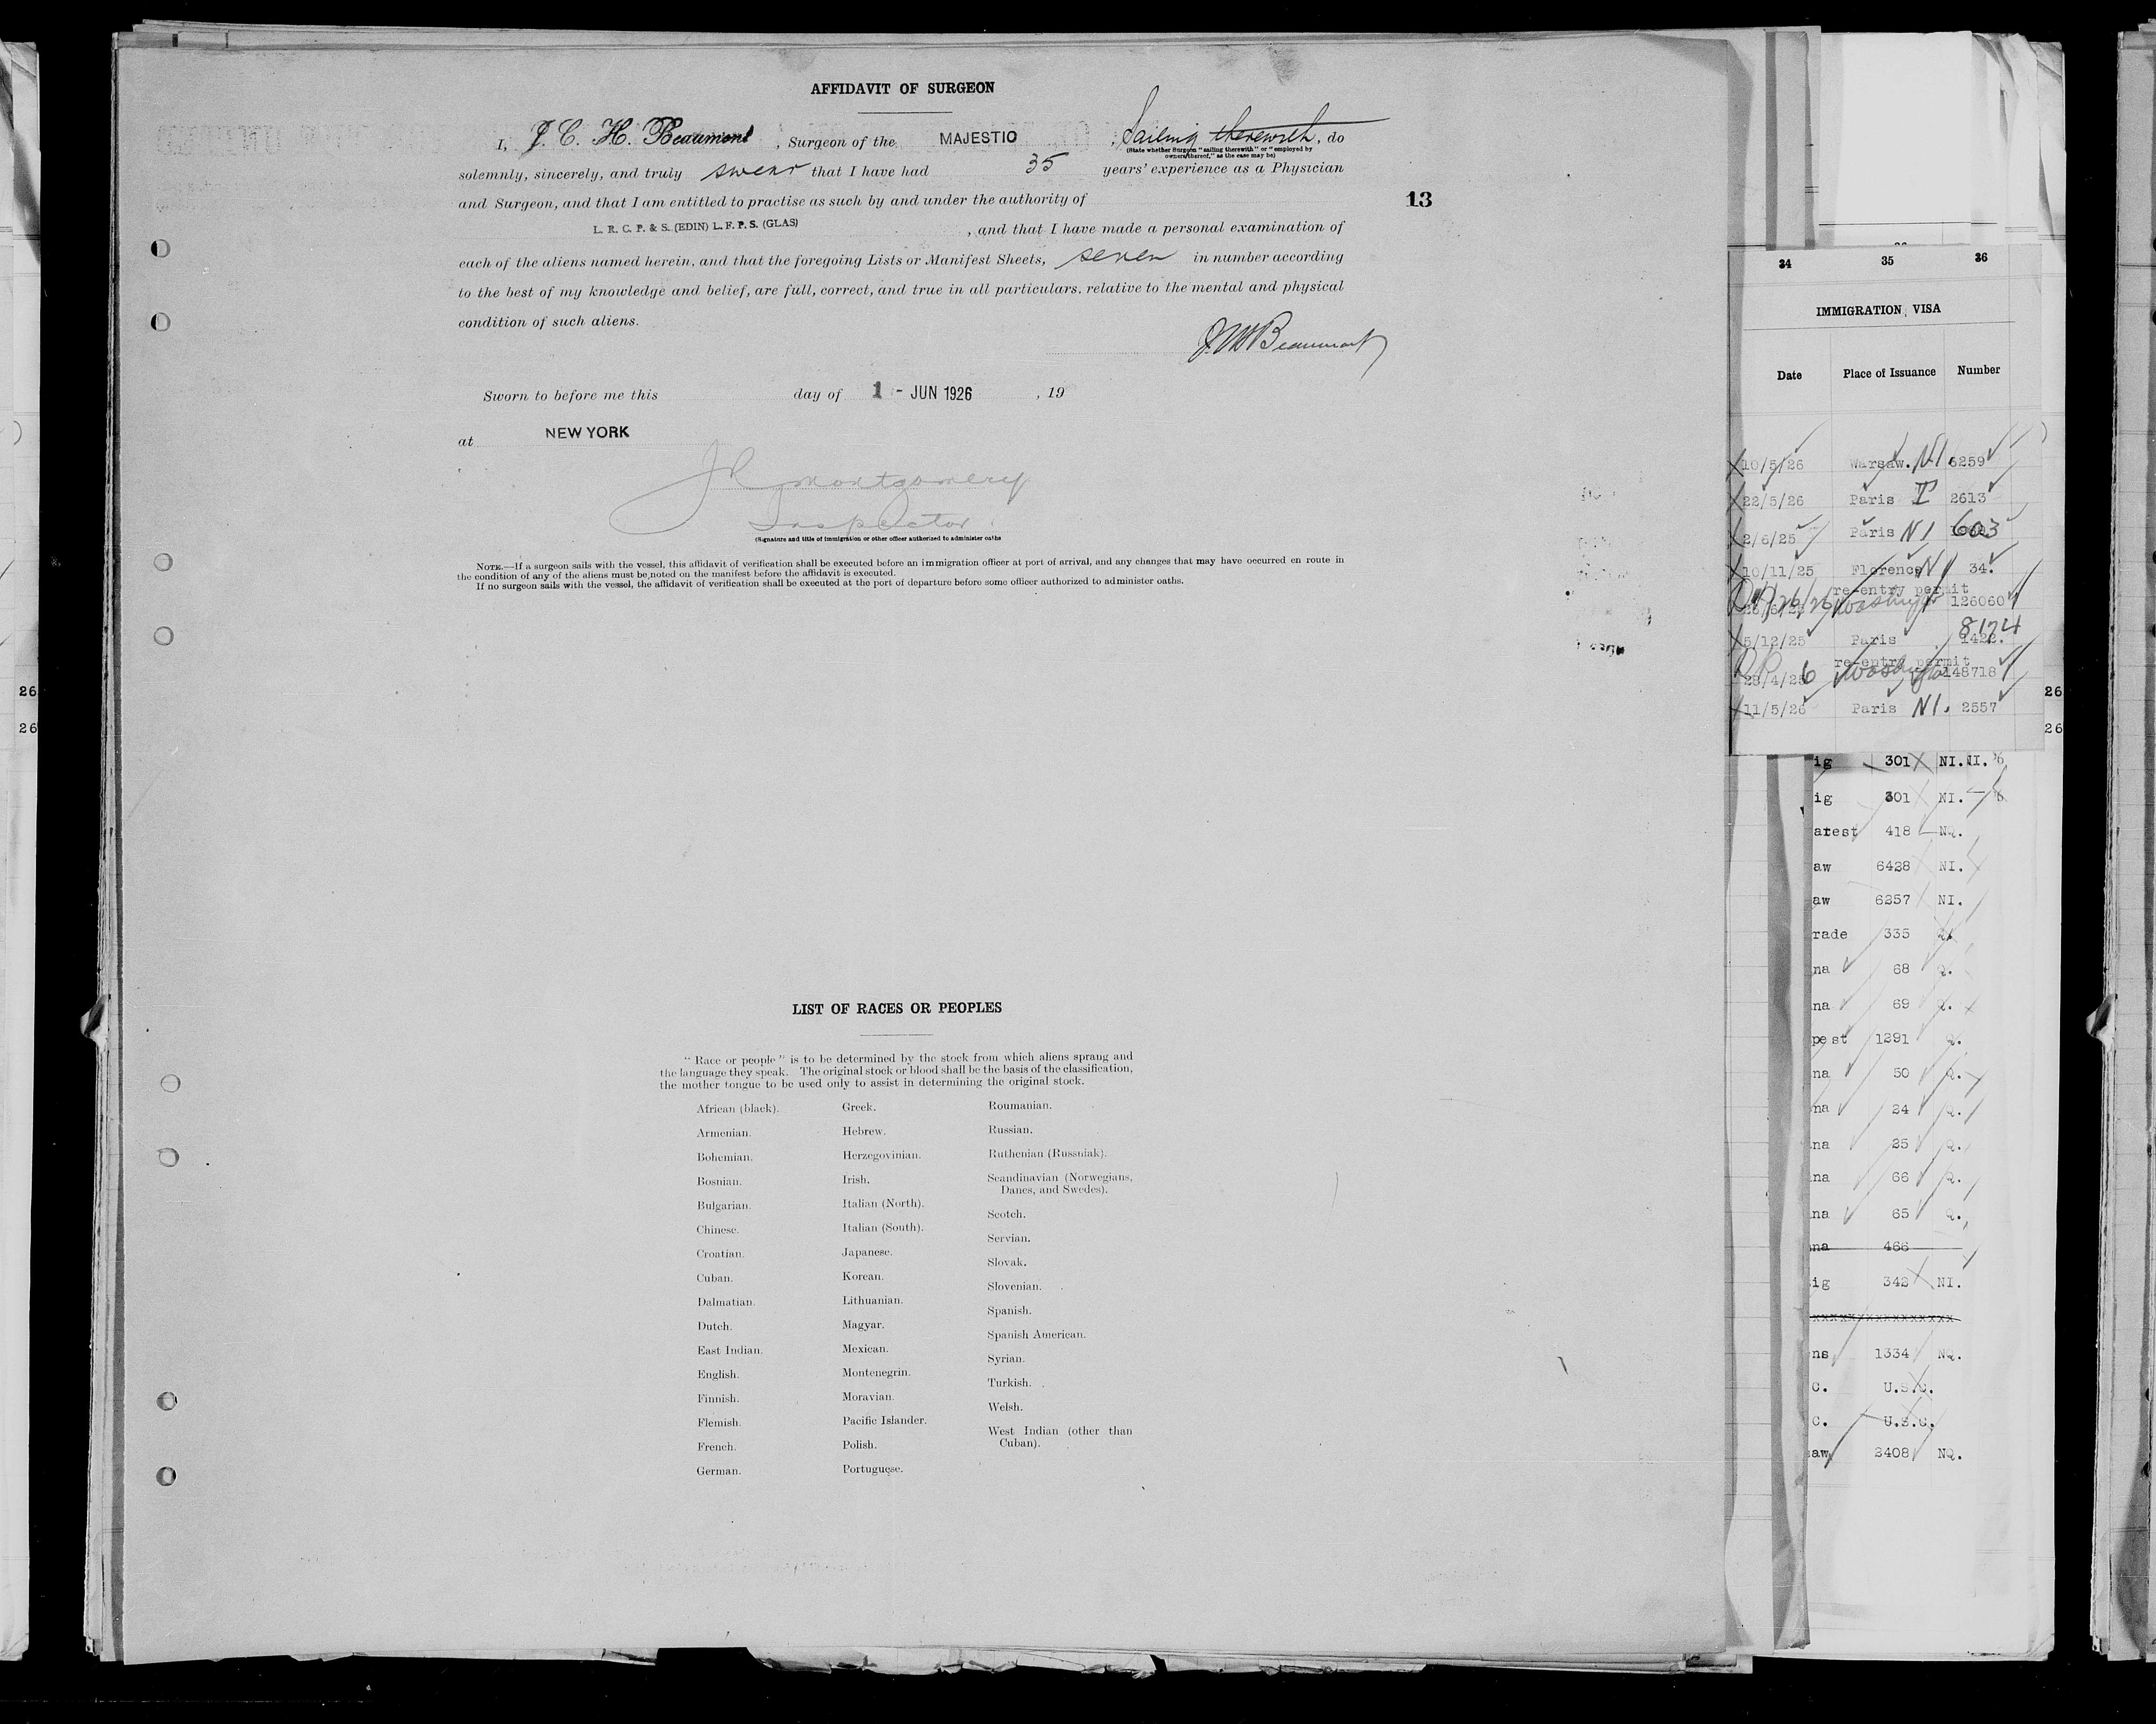 AFFIDAVIT OF SURGEON
I, J. C. H. Beaumont, Surgeon of the MAJESTIC, Sailing therewith, do
(State whether Surgeon "sailing therewith" or "employed by
owners thereof," as the case may be)
solemnly, sincerely, and truly swear that I have had 35 years' experience as a Physician
and Surgeon, and that I am entitled to practise as such by and under the authority of
L. R. C. P. & S. (EDIN) L. F. P. S. (GLAS), and that I have made a personal examination of
each of the aliens named herein, and that the foregoing Lists or Manifest Sheets, seven in number according
to the best of my knowledge and belief, are full, correct, and true in all particulars, relative to the mental and physical
condition of such aliens.
Beaumont
13
Sworn to before me this day of 1 - JUN 1926, 19
at NEW YORK
Montgomery
Inspector.
(Signature and title of immigration or other officer authorized to administer oaths
NOTE.—If a surgeon sails with the vessel, this affidavit of verification shall be executed before an immigration officer at port of arrival, and any changes that may have occurred en route in
the condition of any of the aliens must be noted on the manifest before the affidavit is executed.
If no surgeon sails with the vessel, the affidavit of verification shall be executed at the port of departure before some officer authorized to administer oaths.
LIST OF RACES OR PEOPLES
"Race or people" is to be determined by the stock from which aliens sprang and
the language they speak. The original stock or blood shall be the basis of the classification,
the mother tongue to be used only to assist in determining the original stock.
African (black).
Armenian.
Bohemian.
Bosnian.
Bulgarian.
Chinese.
Croatian.
Cuban.
Dalmatian.
Dutch.
East Indian.
English.
Finnish.
Flemish.
French.
German.
Greek.
Hebrew.
Herzegovinian.
Irish.
Italian (North).
Italian (South).
Japanese.
Korean.
Lithuanian.
Magyar.
Mexican.
Montenegrin.
Moravian.
Pacific Islander.
Polish.
Portuguese.
Roumanian.
Russian.
Ruthenian (Russniak).
Scandinavian (Norwegians,
Danes, and Swedes).
Scotch.
Servian.
Slovak.
Slovenian.
Spanish.
Spanish American.
Syrian.
Turkish.
Welsh.
West Indian (other than
Cuban).
34 35 36
IMMIGRATION VISA
Date Place of Issuance Number
10/5/26 Warsaw. NI. 6259
22/5/26 Paris 2613
2/6/25 Paris NI 603
10/11/25 Florence NI 34.
re-entry permit
126060
8174
5/12/25 Paris 1422.
re-entry permit
28/4/25 148718
11/5/26 Paris NI. 2557
26
26
26
26
ig 301 NI.
ig 301 NI.
arest 418 NQ.
aw 6428 NI.
aw 6257 NI.
rade 335 Q.
na 68 Q.
na 69 Q.
pest 1291 Q.
na 50 Q.
na 24 Q.
na 25 Q.
na 66 Q.
na 65 Q.
na 466
ig 342 NI.
xxxxxxxxxxxxxxxxx
ns 1334 NQ.
C. U.S.C.
C. U.S.C.
aw 2408 NQ.